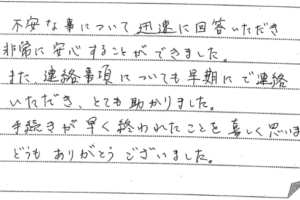 不安な事について迅速に回答いただき
非常に安心することができました。
また、連絡事項についても早期にご連絡
いただき、とても助かりました。
手続きが早く終われたことを喜しく思いま
どうもありがとうございました。